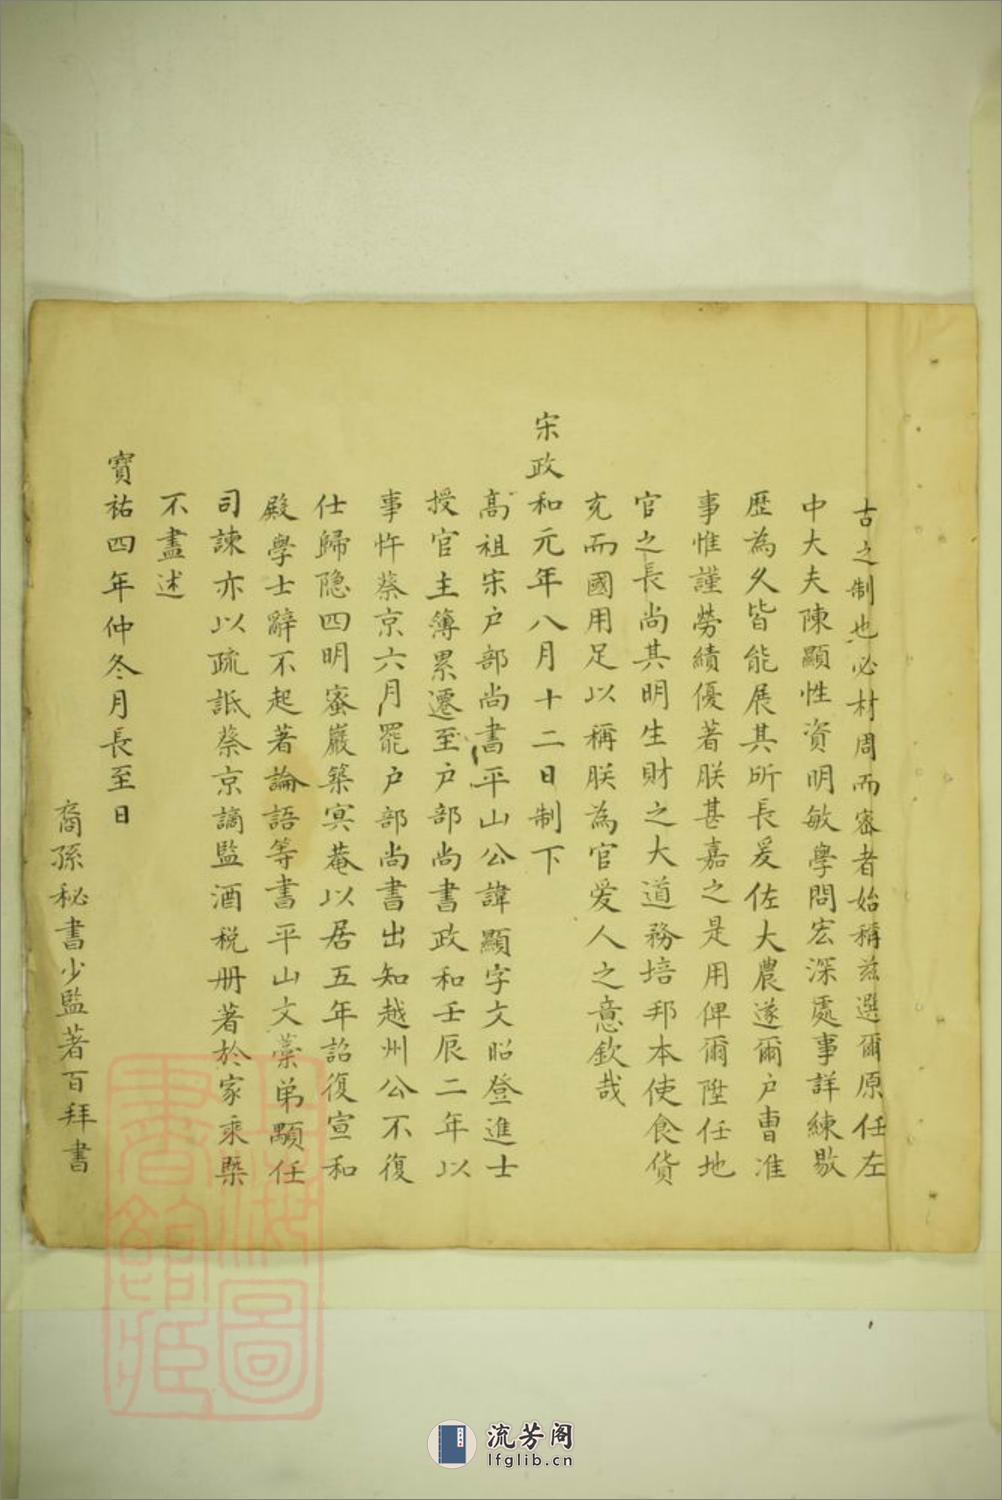 古之制也必材周而審者始稱兹選爾原任左
中大夫陳顯性資明敏學問宏深處事詳練敭
歷為久皆能展其所長爰佐大農遂爾户曹准
事惟謹勞績優著朕甚嘉之是用俾爾陞任地
官之長尚其明生財之大道務培邦本使食貨
充而國用足以稱朕為官爱人之意欽哉
宋政和元年八月十二日制下
髙祖宋户部尚書平山公諱顯字文昭登進士
授官主簿累遷至户部尚書政和壬辰二年以
事忤蔡京六月罷户部尚書出知越州公不復
仕歸隐四明蜜巖築冥菴以居五年詔復宣和
殿學士辭不起著論語等書平山文藁弟顒任
司諫亦以疏詆蔡京謫監酒税册著於家乘槩
不盡述
寳祐四年仲冬月長至日
裔孫秘書少監著百拜書
上海圖
書館藏
流芳阁
lfglib.cn